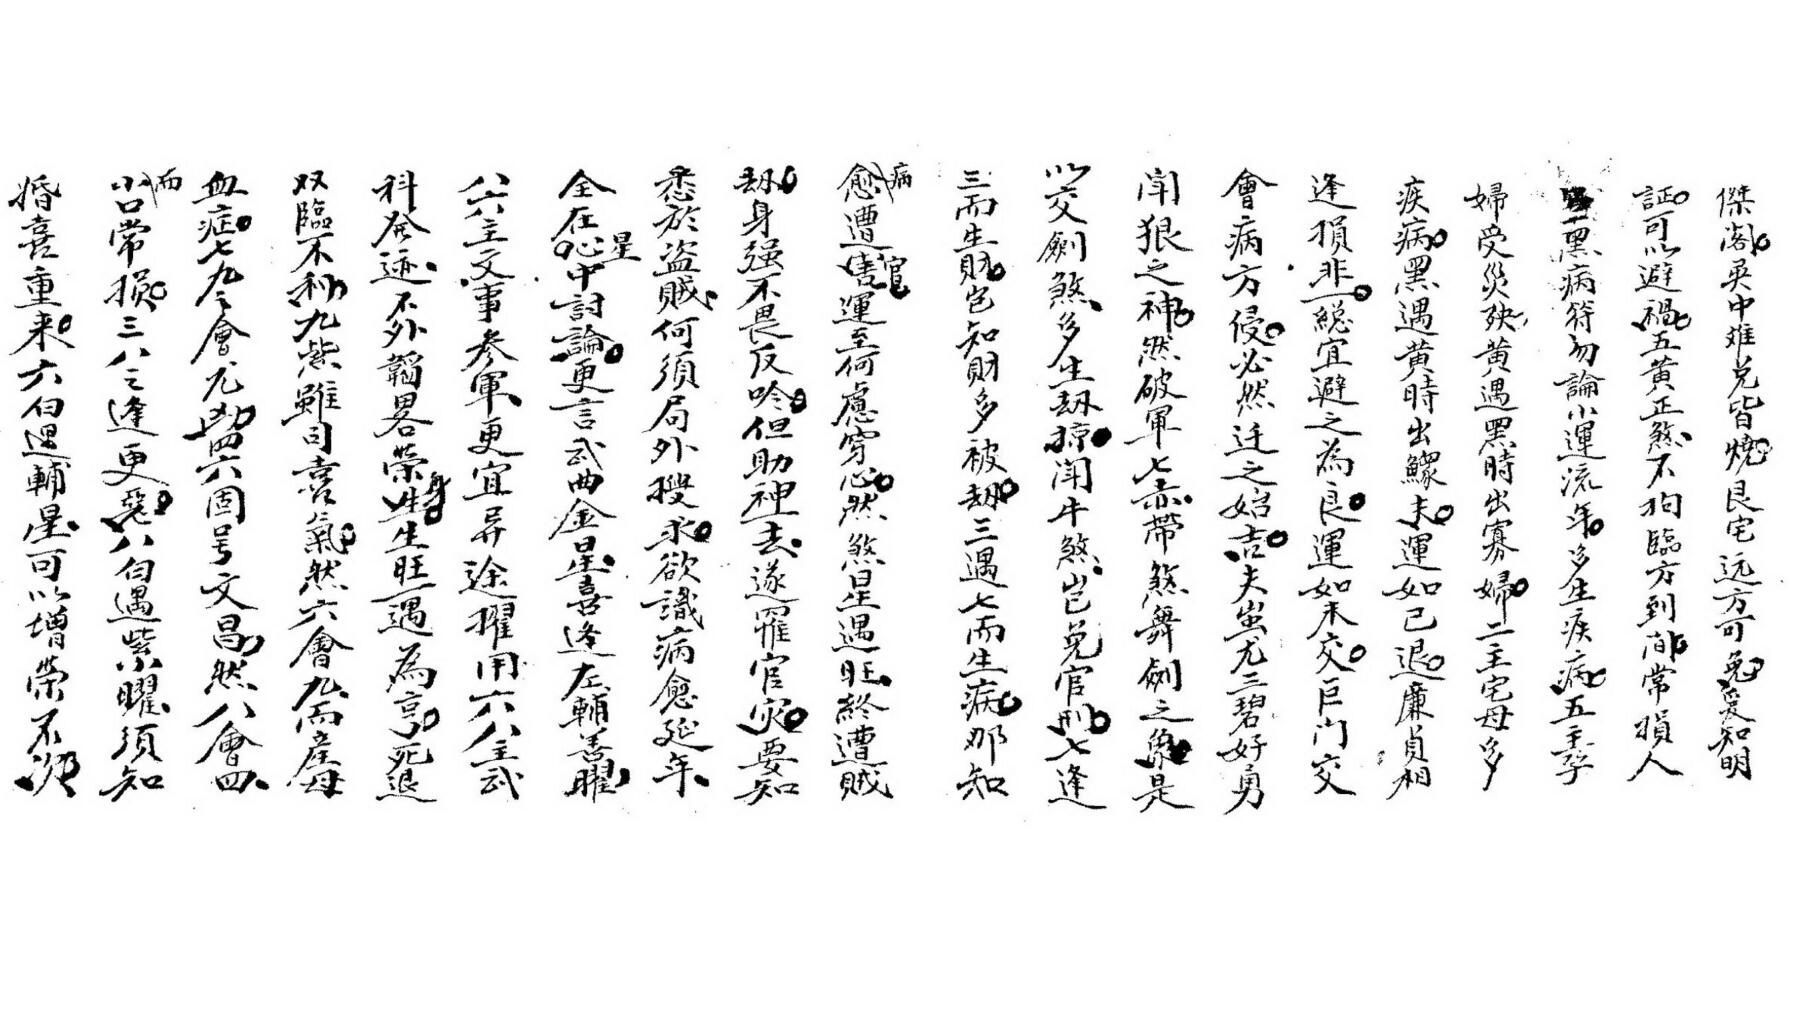 傑阁巽中难免皆燒艮宅远方可免爰知明
証可以避禍五黄正煞不拘臨方到间常損人
二黑病符勿論小運流年多生疾病五主孕
婦受災殃黄遇黑時出寡婦二主宅母多
疾病黑遇黄時出鰥夫運如已退廉貞相
逢損非一縂宜避之為良運如未交巨门交
會病方侵必然迁之始吉夫蚩尤三碧好勇
闹狠之神然破軍七赤带煞舞劍之象是
以交劍煞多生刼掠闹牛煞岂免官刑七逢
三而生財岂知財多被刼三遇七而生病那知
病愈遭官運至何慮穿心然煞星遇旺終遭賊
刼身强不畏反吟但助神去遂罹官灾要知
悉於盗賊何須局外搜求欲識病愈延年
全在星中討論更言武曲金星喜逢左輔善曜
八六主文事参軍更宜异途擢用六八主武
科発迹不外韜畧荣身生旺一遇為亨死退
双臨不利九紫雖司喜氣然六會九而産母
血症七九之會尤凶四六固号文昌然八會四
而小口常損三八之逢更惡八白遇紫曜须知
婚喜重来六白遇輔星可以增荣不次